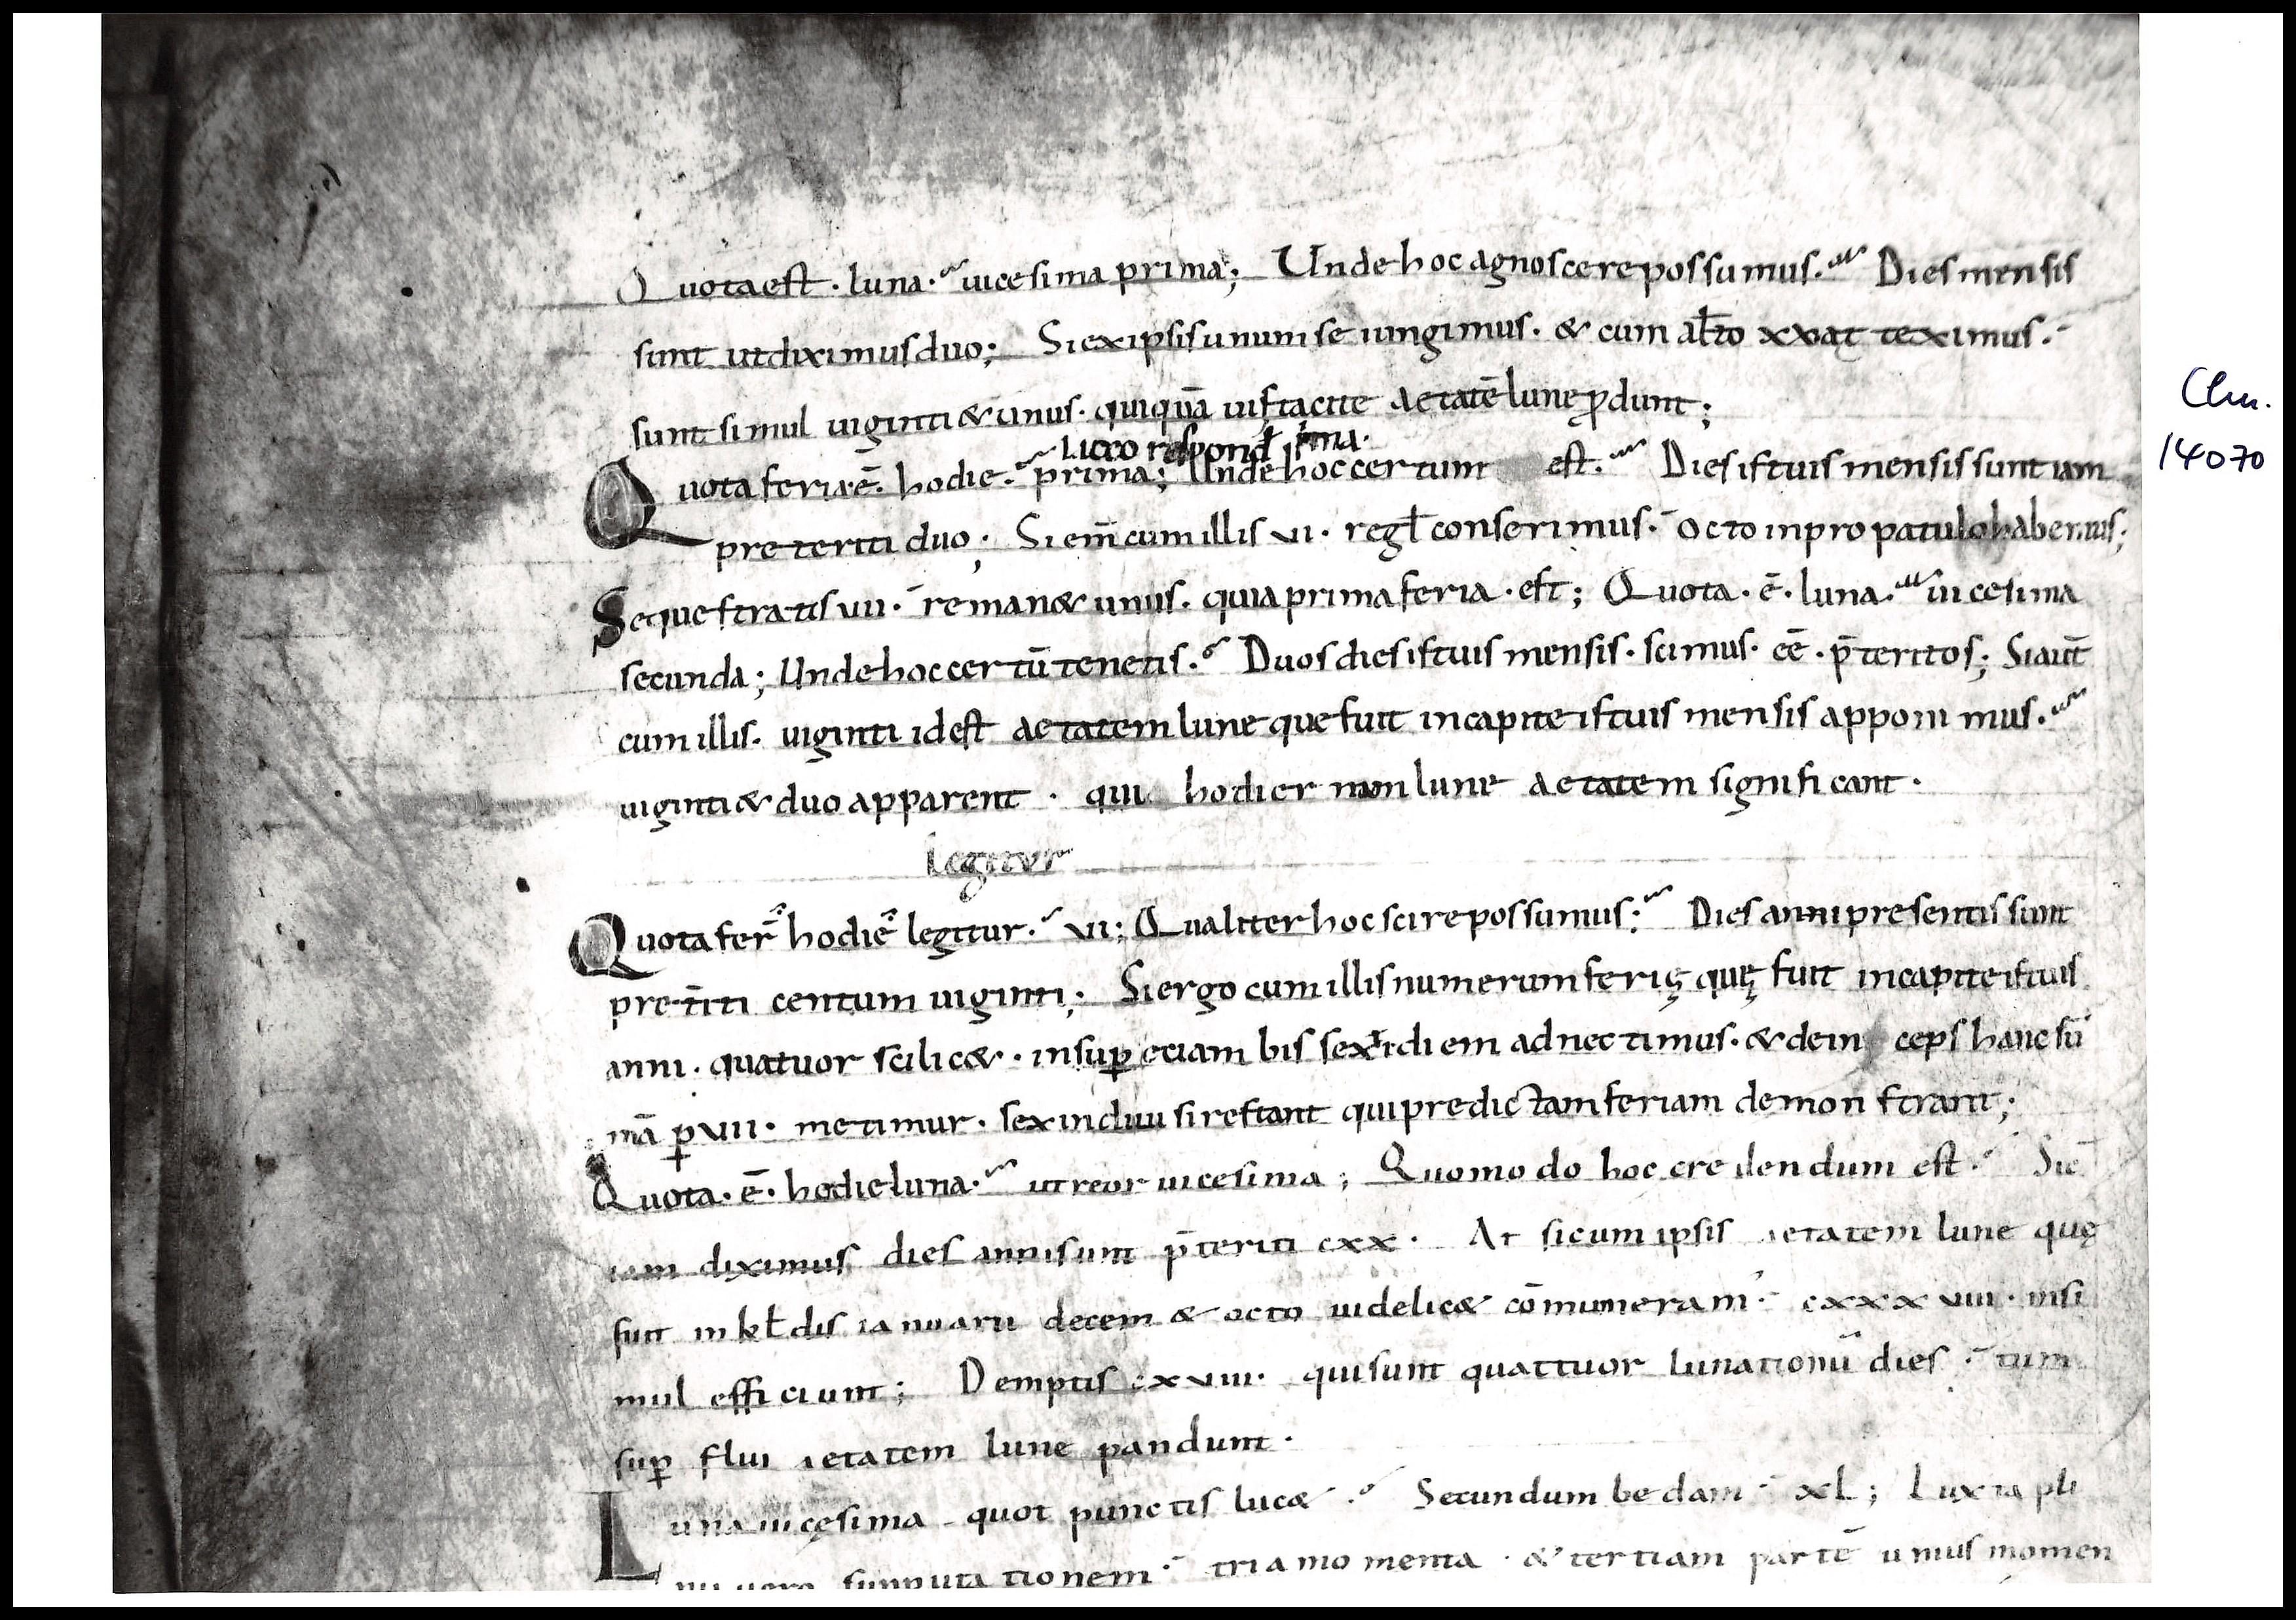 Quota est · luna · uicesima prima; Unde hoc agnoscere possumus. Dies mensis
sunt ut diximus duo; Si ex ipsis unum seiungimus · & cum alt̄o xx atteximus.
sunt simul uiginti & unus · aetatē lune ꝓdunt;
respond
Quota feria ē hodie. prima; Unde hoc certum est. Dies istius mensis sunt iam
preteriti duo; Si em̄ cum illis vi · regł conserimus · octo in propatulo habemus;
Sequestratis vii · reman& unus · quia prima feria · est; Quota · ē · luna. uicesima
secunda; Unde hoc certū tenetis. Duos dies istius mensis · scimus · eē · p̄teritos; Si aut̄
cum illis · uiginti id est aetatem lune que fuit in capite istius mensis apponimus.
uiginti & duo apparent · qui hodiernam lune aetatem significant ·
legitur
Quota fer̄ hodie legitur. vii; Qualiter hoc scire possumus; Dies anni presentis sunt
pret̄iti centum uiginti; Si ergo cum illis numerum ferię quę fuit in capite istius
anni · quatuor scilic& · insuꝑ etiam bissexti diem adnectimus · & deinceps hanc sū
mā ꝑ vii · metimur · sex indiuisi restant qui predictam feriam demonstrant;
Quota · ē · hodie luna. ut reor uicesima; Quomodo hoc credendum est. Sic
iam diximus dies anni sunt p̄teriti cxx · At si cum ipsis aetatem lune quę
fuit in kłdis ianuarii decem & octo uidelic& cōmuneram cxxxviii · insi
mul efficiunt; Demptis cxviii · qui sunt quattuor lunationū dies · tum
suꝑflui aetatem lune pandunt ·
Luna uicęsima quot punctis luc& . Secundum bedam xl; Iuxta pli
nii uero supputationem · tria momenta · & tertiam partē unius momen
Clm.
14070